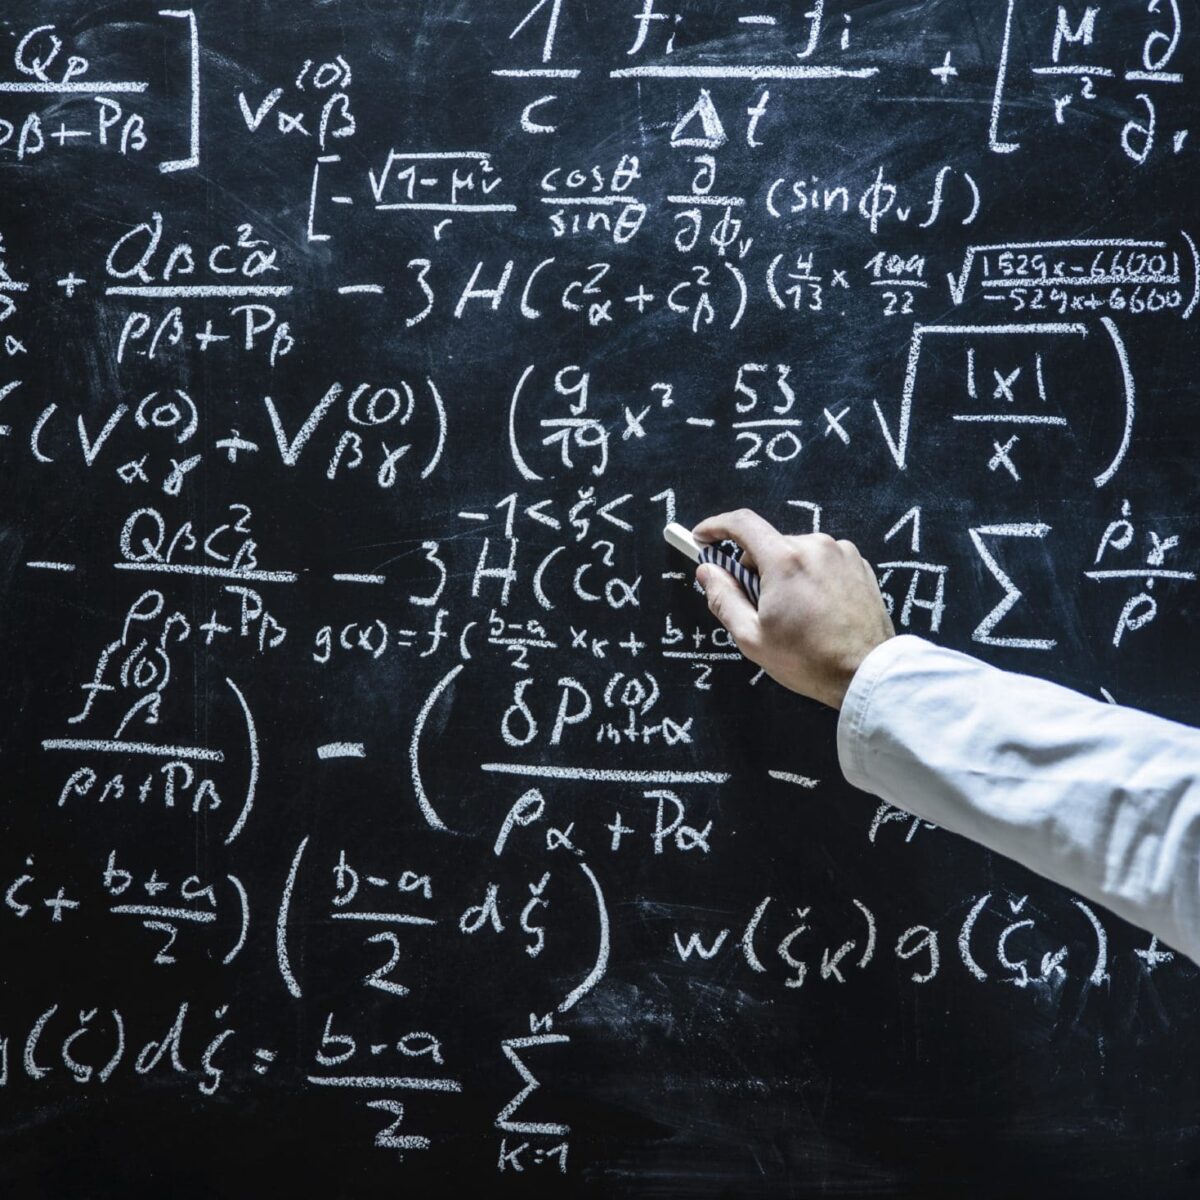 Qρ / ρβ+Pβ ] Vαβ^(0) 1/c (fi - fi)/Δt + [ M/r² ∂/∂r
[ - √(1-μv²)/r cosθ/sinθ ∂/∂ϕv (sin ϕv f)
+ Qβc²α / ρβ+Pβ - 3H(c²α+c²β) (4/13 x 199/22 √(|529x-6600|/-529x+6600))
(Vαγ^(0) + Vβγ^(0)) (9/19 x² - 53/20 x √(|x|/x))
-1<ξ<1
- Qβc²β / ρβ+Pβ - 3H(c²α - 1/6H Σ ρ̇γ/ρ̇
g(x)=f((b-a)/2 xκ + (b+a)/2
fβ^(0) / ρβ+Pβ ) - ( δP^(0)intrα / ρα+Pα -
ξ + (b+a)/2 ) ( (b-a)/2 dξ ) w(ξκ) g(ξκ) +
g(ξ)dξ = (b-a)/2 Σ n K=1